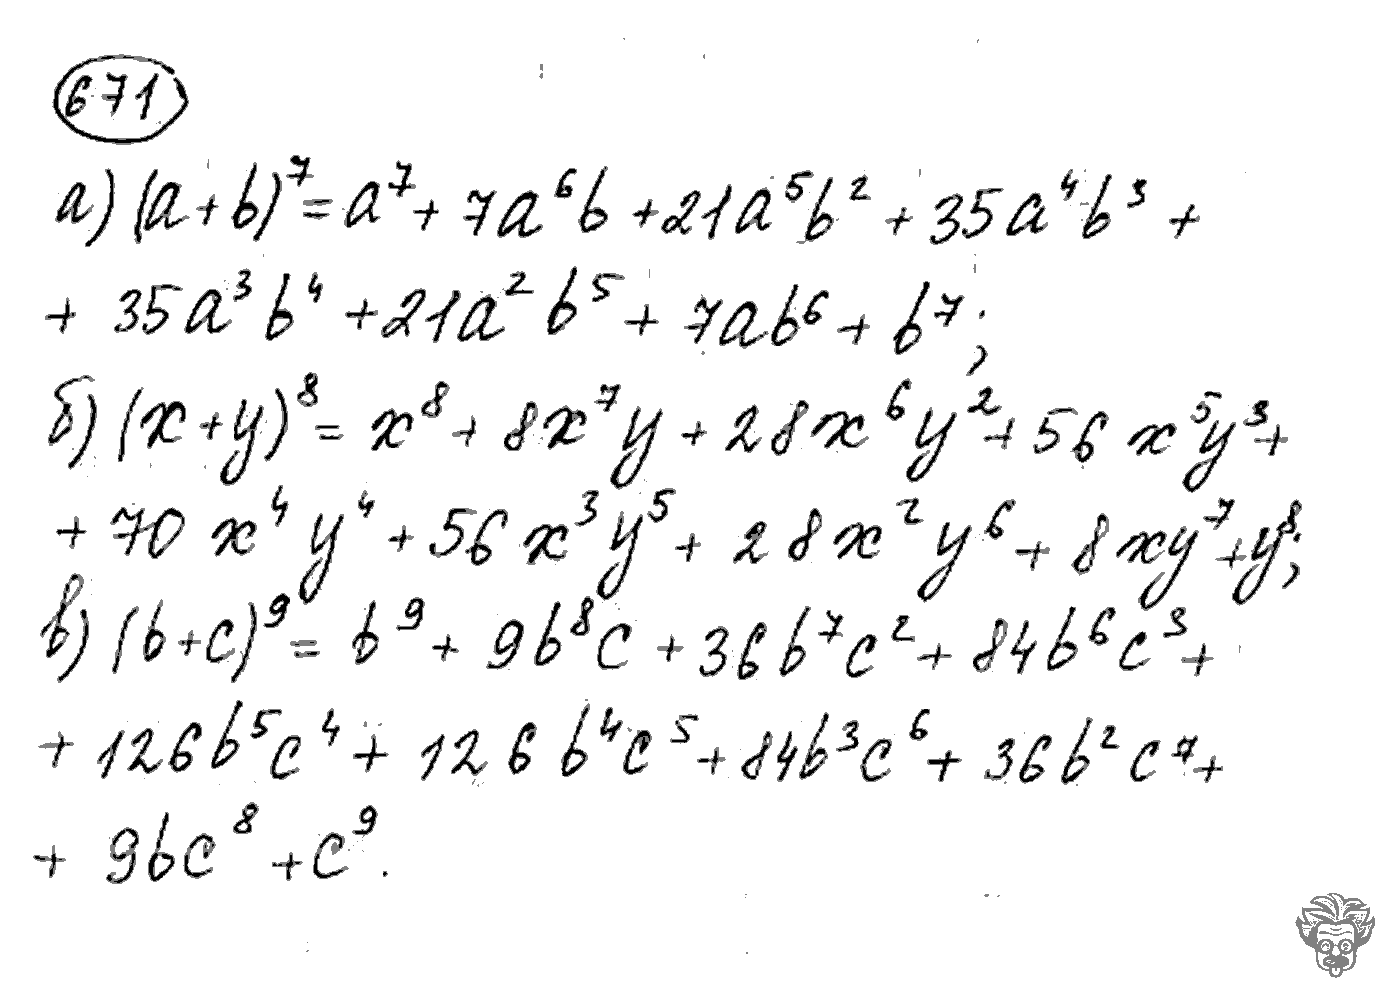 671
а) (a+b)⁷= a⁷+ 7a⁶b +21a⁵b² + 35a⁴b³ +
+ 35a³b⁴ +21a²b⁵ + 7ab⁶ + b⁷;
б) (x+y)⁸= x⁸+ 8x⁷y + 28x⁶y²+ 56x⁵y³+
+ 70x⁴y⁴ + 56x³y⁵ + 28x²y⁶ + 8xy⁷+y⁸;
в) (b+c)⁹= b⁹ + 9b⁸c + 36b⁷c² + 84b⁶c³ +
+ 126b⁵c⁴ + 126b⁴c⁵ + 84b³c⁶ + 36b²c⁷ +
+ 9bc⁸ + c⁹.